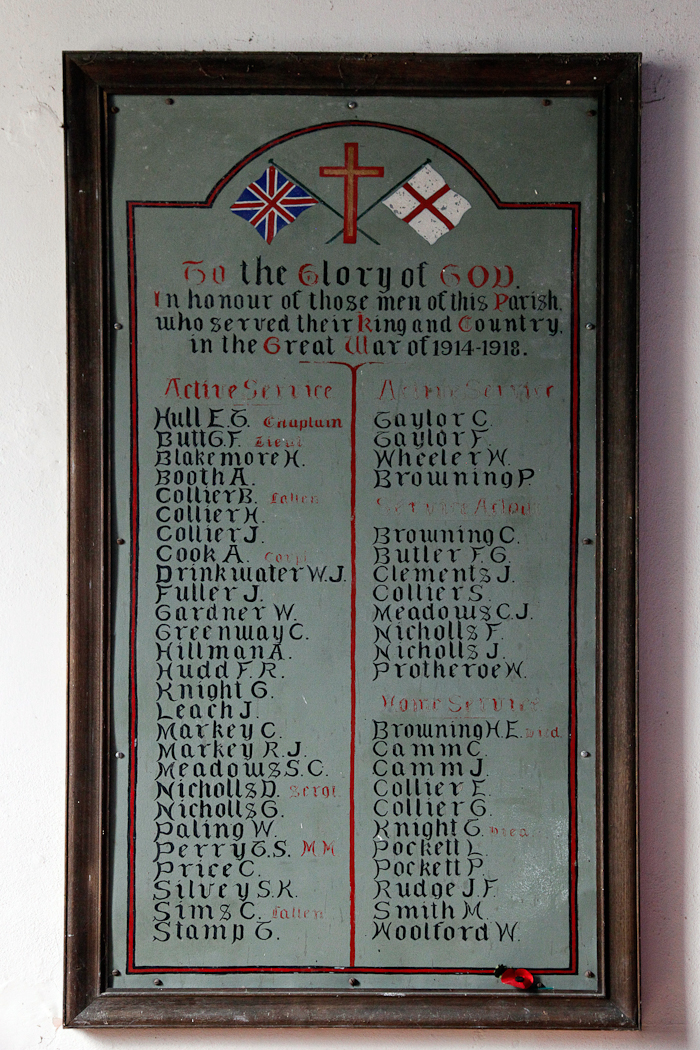 To the Glory of GOD.
In honour of those men of this Parish,
who served their King and Country,
in the Great War of 1914-1918.
Active Service
Hull E.T. Chaplain
Butt G.F. Lieut
Blakemore H.
Booth A.
Collier B. fallen
Collier H.
Collier J.
Cook A. Corpl
Drinkwater W.J.
Fuller J.
Gardner W.
Greenway C.
Hillman A.
Hudd F.R.
Knight G.
Leach J.
Markey C.
Markey R.J.
Meadows S.C.
Nicholls D. Sergt
Nicholls G.
Paling W.
Perry T.S. MM
Price C.
Silvey S.K.
Sims C. fallen
Stamp T.
Active Service
Taylor C.
Taylor F.
Wheeler W.
Browning P.
Service
Browning C.
Butler F.G.
Clements J.
Collier S.
Meadows C.J.
Nicholls F.
Nicholls J.
Protheroe W.
Home Service
Browning H.E. Died
Camm C.
Camm J.
Collier E.
Collier G.
Knight T. Died
Pockett L.
Pockett P.
Rudge J.F.
Smith M.
Woolford W.